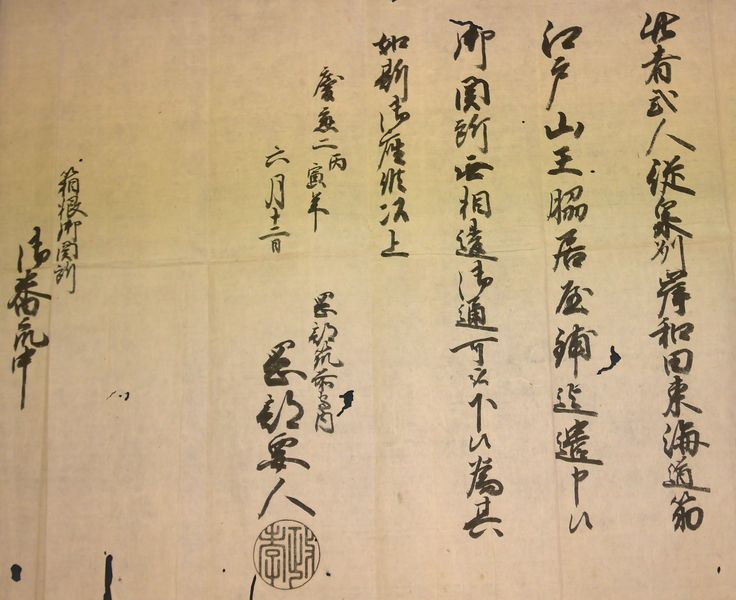 此者弐人従泉刕岸和田東海道筋
江戸山王脇居屋鋪迄遣申候
御関所無相違御通可被下候為其
如斯御座候以上
慶應二丙寅年
六月十二日
岡部筑前守内
岡部要人
箱根御関所
御番衆中